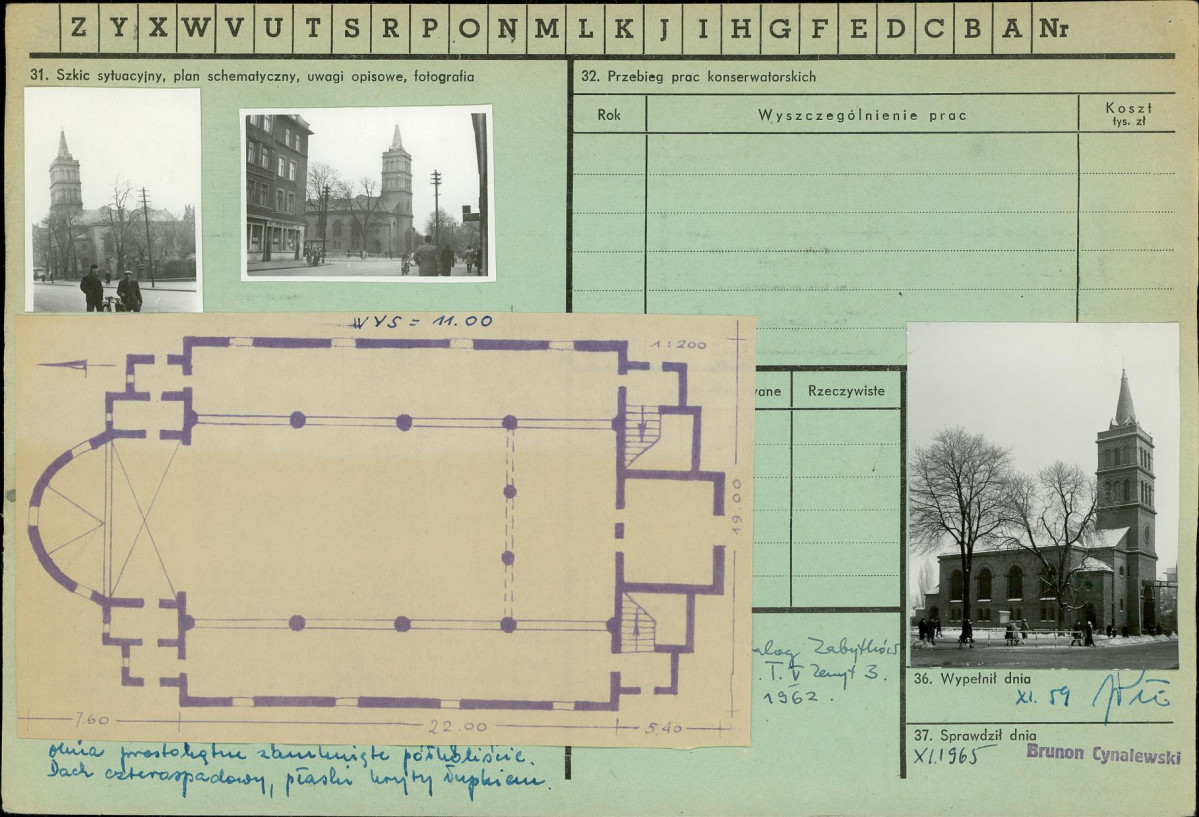 Z Y X W V U T S R P O N M L K J I H G F E D C B A Nr
31. Szkic sytuacyjny, plan schematyczny, uwagi opisowe, fotografia
32. Przebieg prac konserwatorskich
Rok
Wyszczególnienie prac
Koszt
tys. zł
WYS = 11.00
1:200
19.00
7.60
22.00
5.40
wane
Rzeczywiste
alog Zabytków
T. V Zeszyt 3.
1962.
36. Wypełnił dnia
XI. 59
37. Sprawdził dnia
XI.1965
Brunon Cynalewski
okna prostokątne zamknięte półkoliście.
Dach czterospadowy, płaski kryty łupkiem.